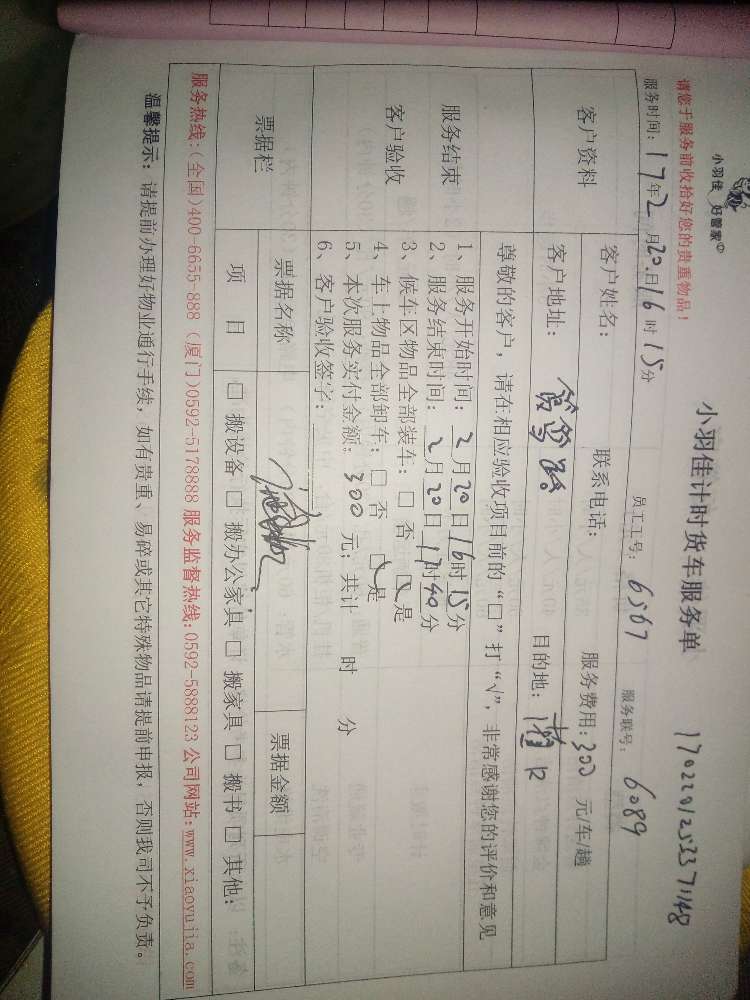 小羽佳 好管家
小羽佳计时货车服务单
请您于服务前收拾好您的贵重物品!
服务时间: 17年2月20日16时15分 员工工号: 6567 服务联号: 6089
客户资料
客户姓名: 联系电话: 服务费用: 300 元/车/趟
客户地址: 目的地:
尊敬的客户, 请在相应验收项目前的“□”打“√”, 非常感谢您的评价和意见
服务结束
客户验收
1、服务开始时间: 2月20日16时15分
2、服务结束时间: 2月20日17时40分
3、候车区物品全部装车: □ 否 ☑ 是
4、车上物品全部卸车: □ 否 ☑ 是
5、本次服务实付金额: 300 元; 共计 时 分
6、客户验收签字:
票据栏 票据名称 票据金额
项 目 □ 搬设备 □ 搬办公家具 □ 搬家具 □ 搬书 □ 其他:
服务热线:(全国)400-6655-888 (厦门)0592-5178888 服务监督热线:0592-5888123 公司网站:www.xiaoyujia.com
温馨提示: 请提前办理好物业通行手续, 如有贵重、易碎或其它特殊物品请提前申报, 否则我司不予负责。